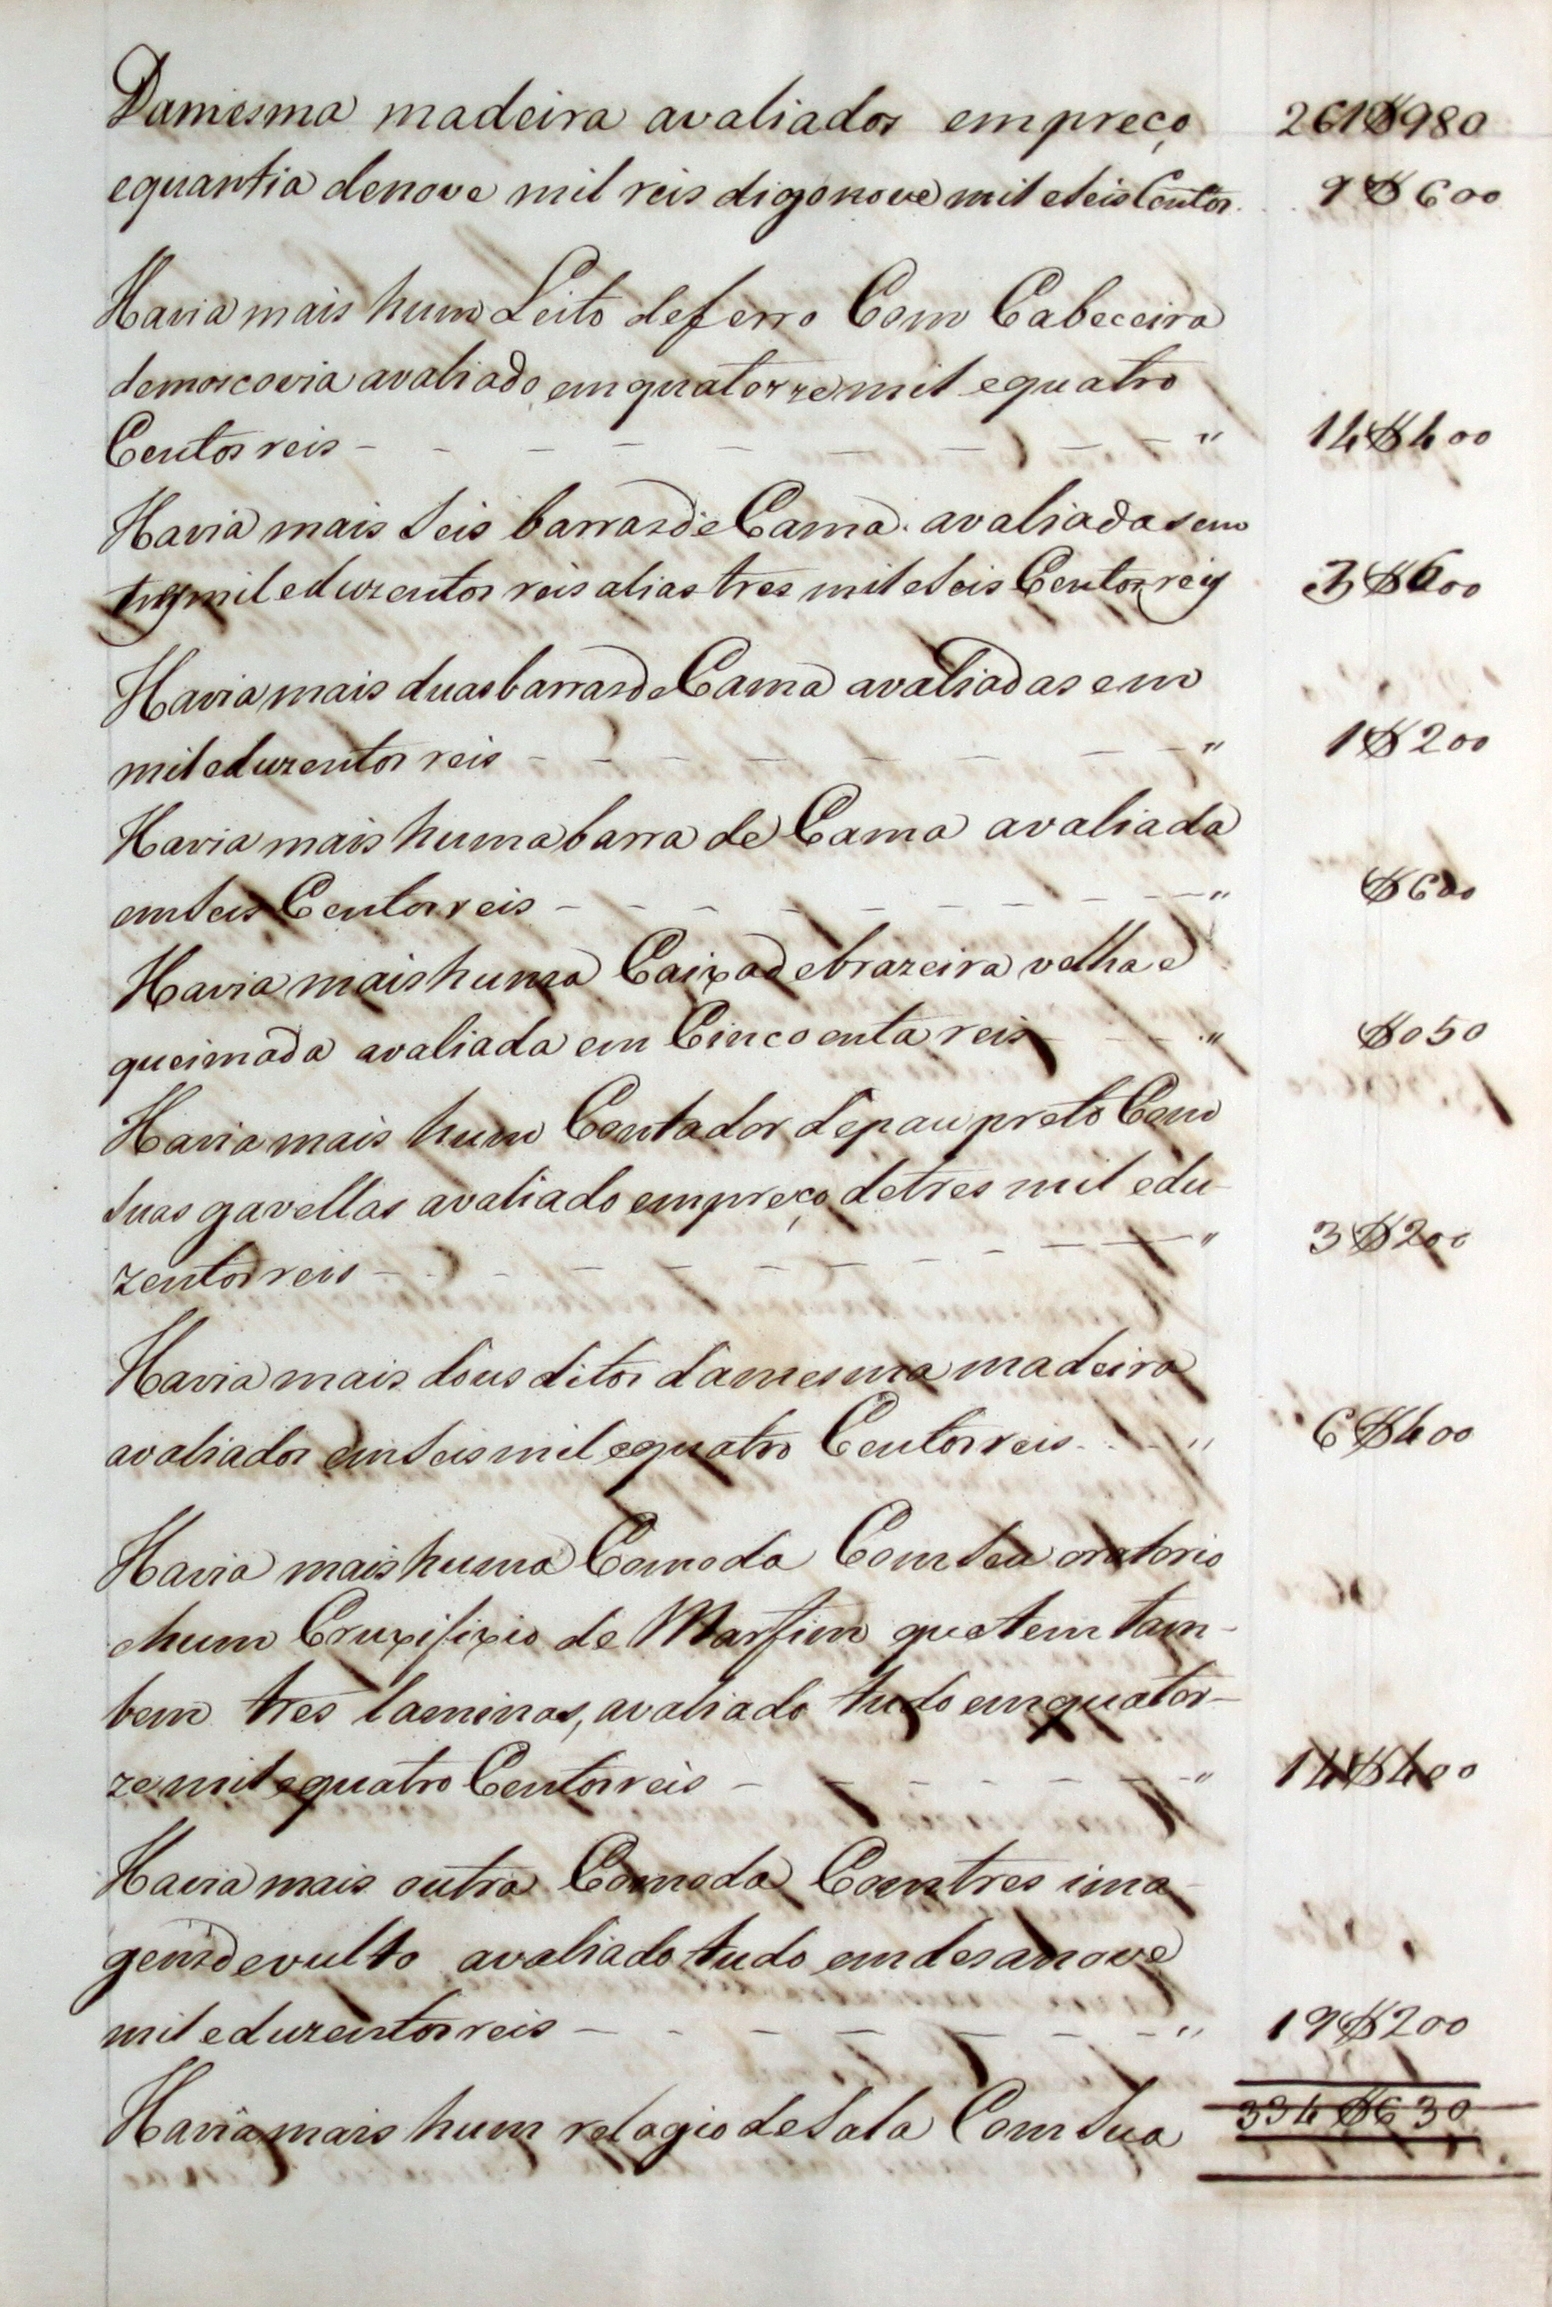 Damesma madeira avaliados empreço 261$980
equantia denove mil reis digo nove mil eseis Centos 9$600
Havia mais hum Leito deferro Com Cabeceira
demoscovia avaliado emquatorze mil equatro
Centos reis - - - - - - - - " 14$400
Havia mais Seis barras de Cama avaliadas em
tres mil eduzentos reis alias tres mil eseis Centos reis 3$600
Havia mais duas barras de Cama avaliadas em
mil eduzentos reis - - - - - - - - " 1$200
Havia mais huma barra de Cama avaliada
em Seis Centos reis - - - - - - - - " $600
Havia mais huma Caixa debrazeira velha e
queimada avaliada em Cincoenta reis - - " $050
Havia mais hum Contador de pau preto Com
suas gavellas avaliado empreço detres mil edu-
zentos reis - - - - - - - - " 3$200
Havia mais dous ditos damesma madeira
avaliados em Seis mil equatro Centos reis - - " 6$400
Havia mais huma Comoda Com Seu oratorio
ehum Cruxifixio de Marfim que tem tam-
bem tres laminas, avaliado tudo emquator-
ze mil equatro Centos reis - - - - - - " 14$400
Havia mais outra Comoda Com tres ima
gens de vulto avaliado tudo em desanove
mil eduzentos reis - - - - - - - " 19$200
Havia mais hum relogio de Sala Com Sua 334$630